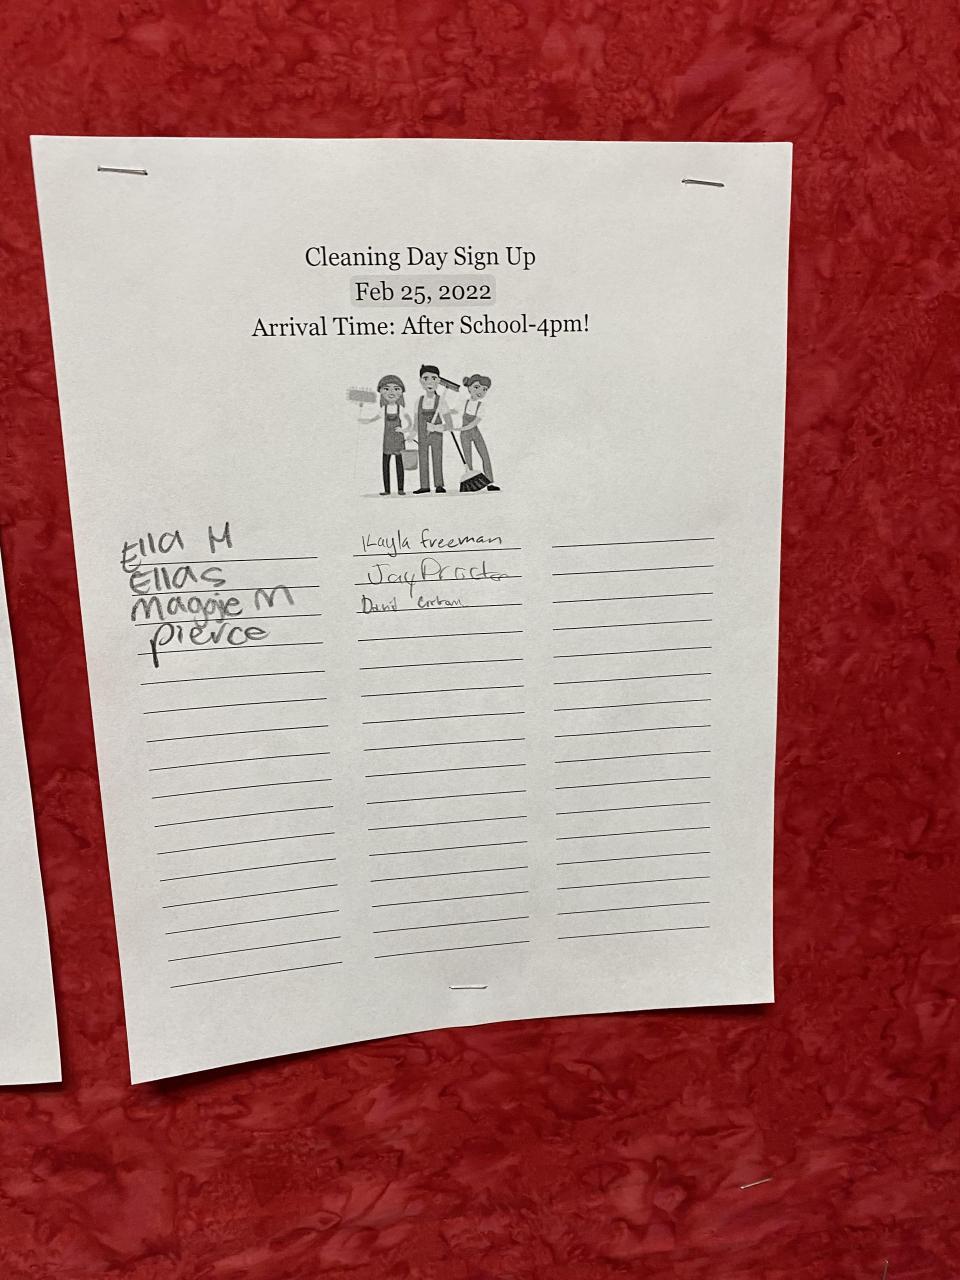 Cleaning Day Sign Up
Feb 25, 2022
Arrival Time: After School-4pm!
Ella M
Ella S
Maggie M
Pierce
Kayla freeman
Jay Proctor
David